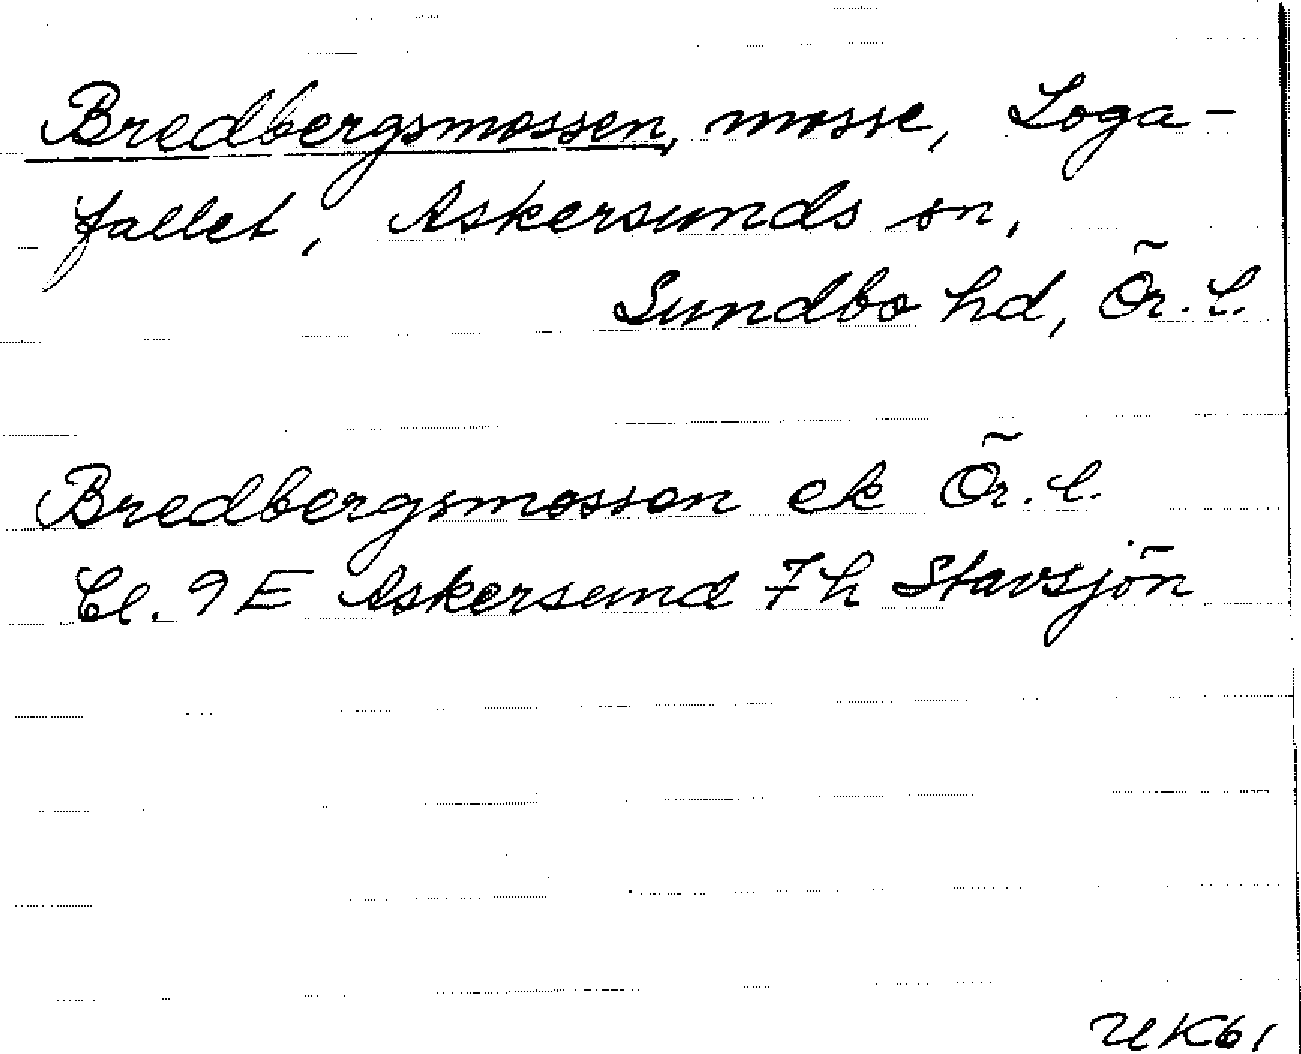 Bredbergsmossen, mosse, Loga-
fallet, Askersunds sn,
Sundbo hd, Ör. l.
Bredbergsmossen ek Ör. l.
Bl. 9 E Askersund 7 h Stavsjön
UK61